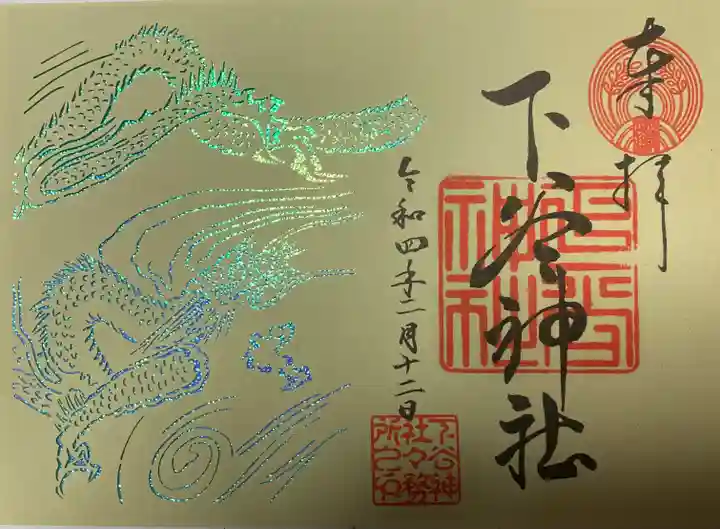 奉拝
下谷神社
令和四年二月十二日
下谷神
社々務
所之印